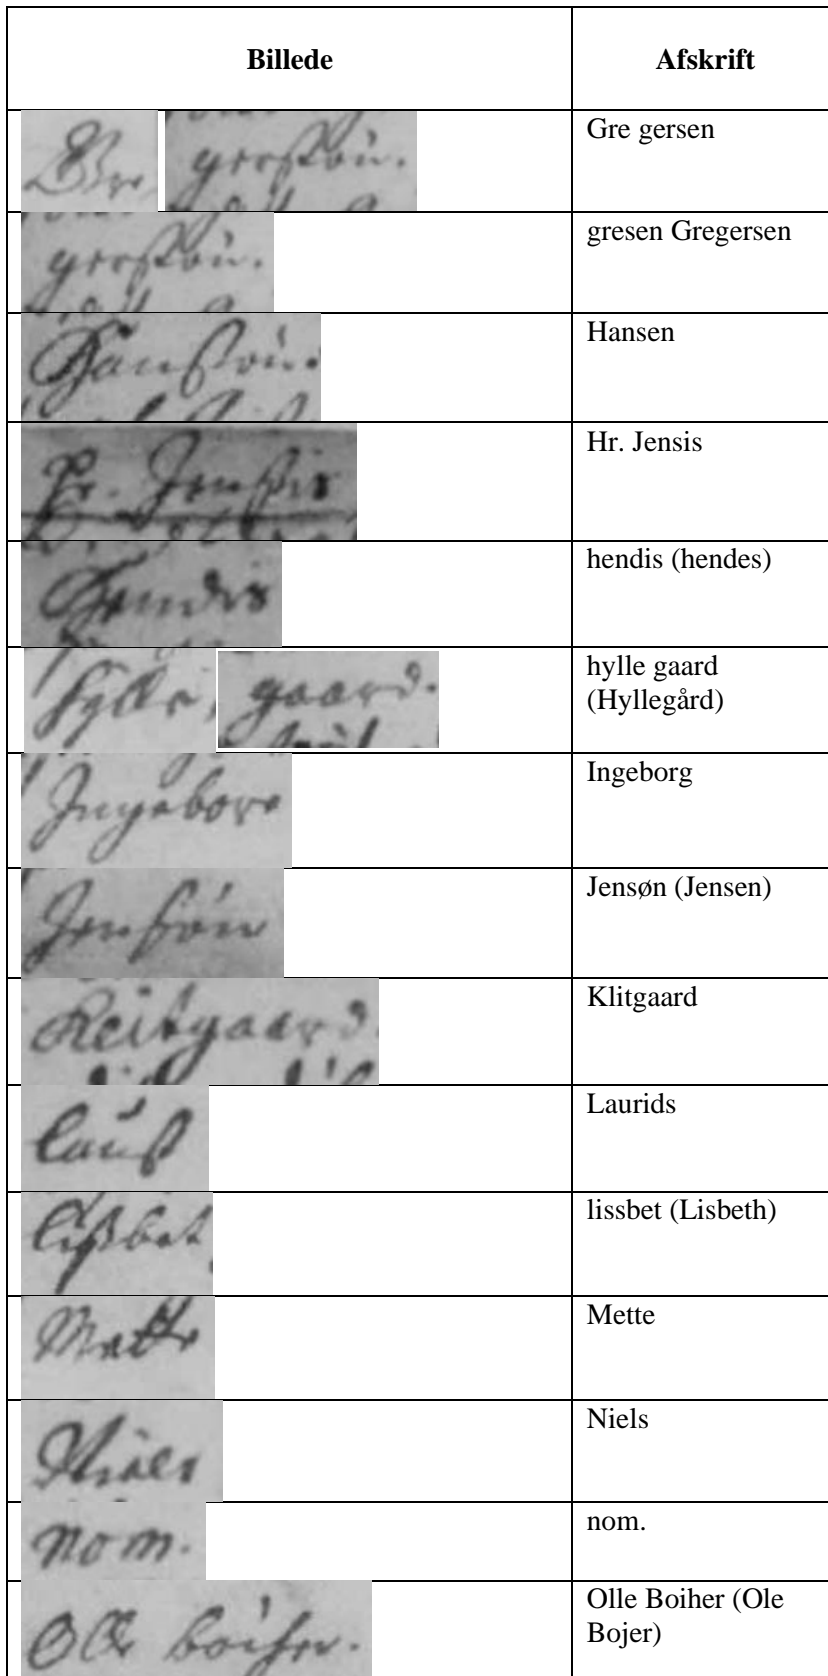 Billede Afskrift
Gre gerssøn. Gre gersen
gerssøn. gresen Gregersen
Hanssøn. Hansen
Hr. Jensis Hr. Jensis
hendis hendis (hendes)
hylle, gaard. hylle gaard
(Hyllegård)
Ingeborg Ingeborg
Jensøn Jensøn (Jensen)
Klitgaard. Klitgaard
Lauss Laurids
lissbet lissbet (Lisbeth)
Mette Mette
Niels Niels
nom. nom.
Olle boiher. Olle Boiher (Ole
Bojer)